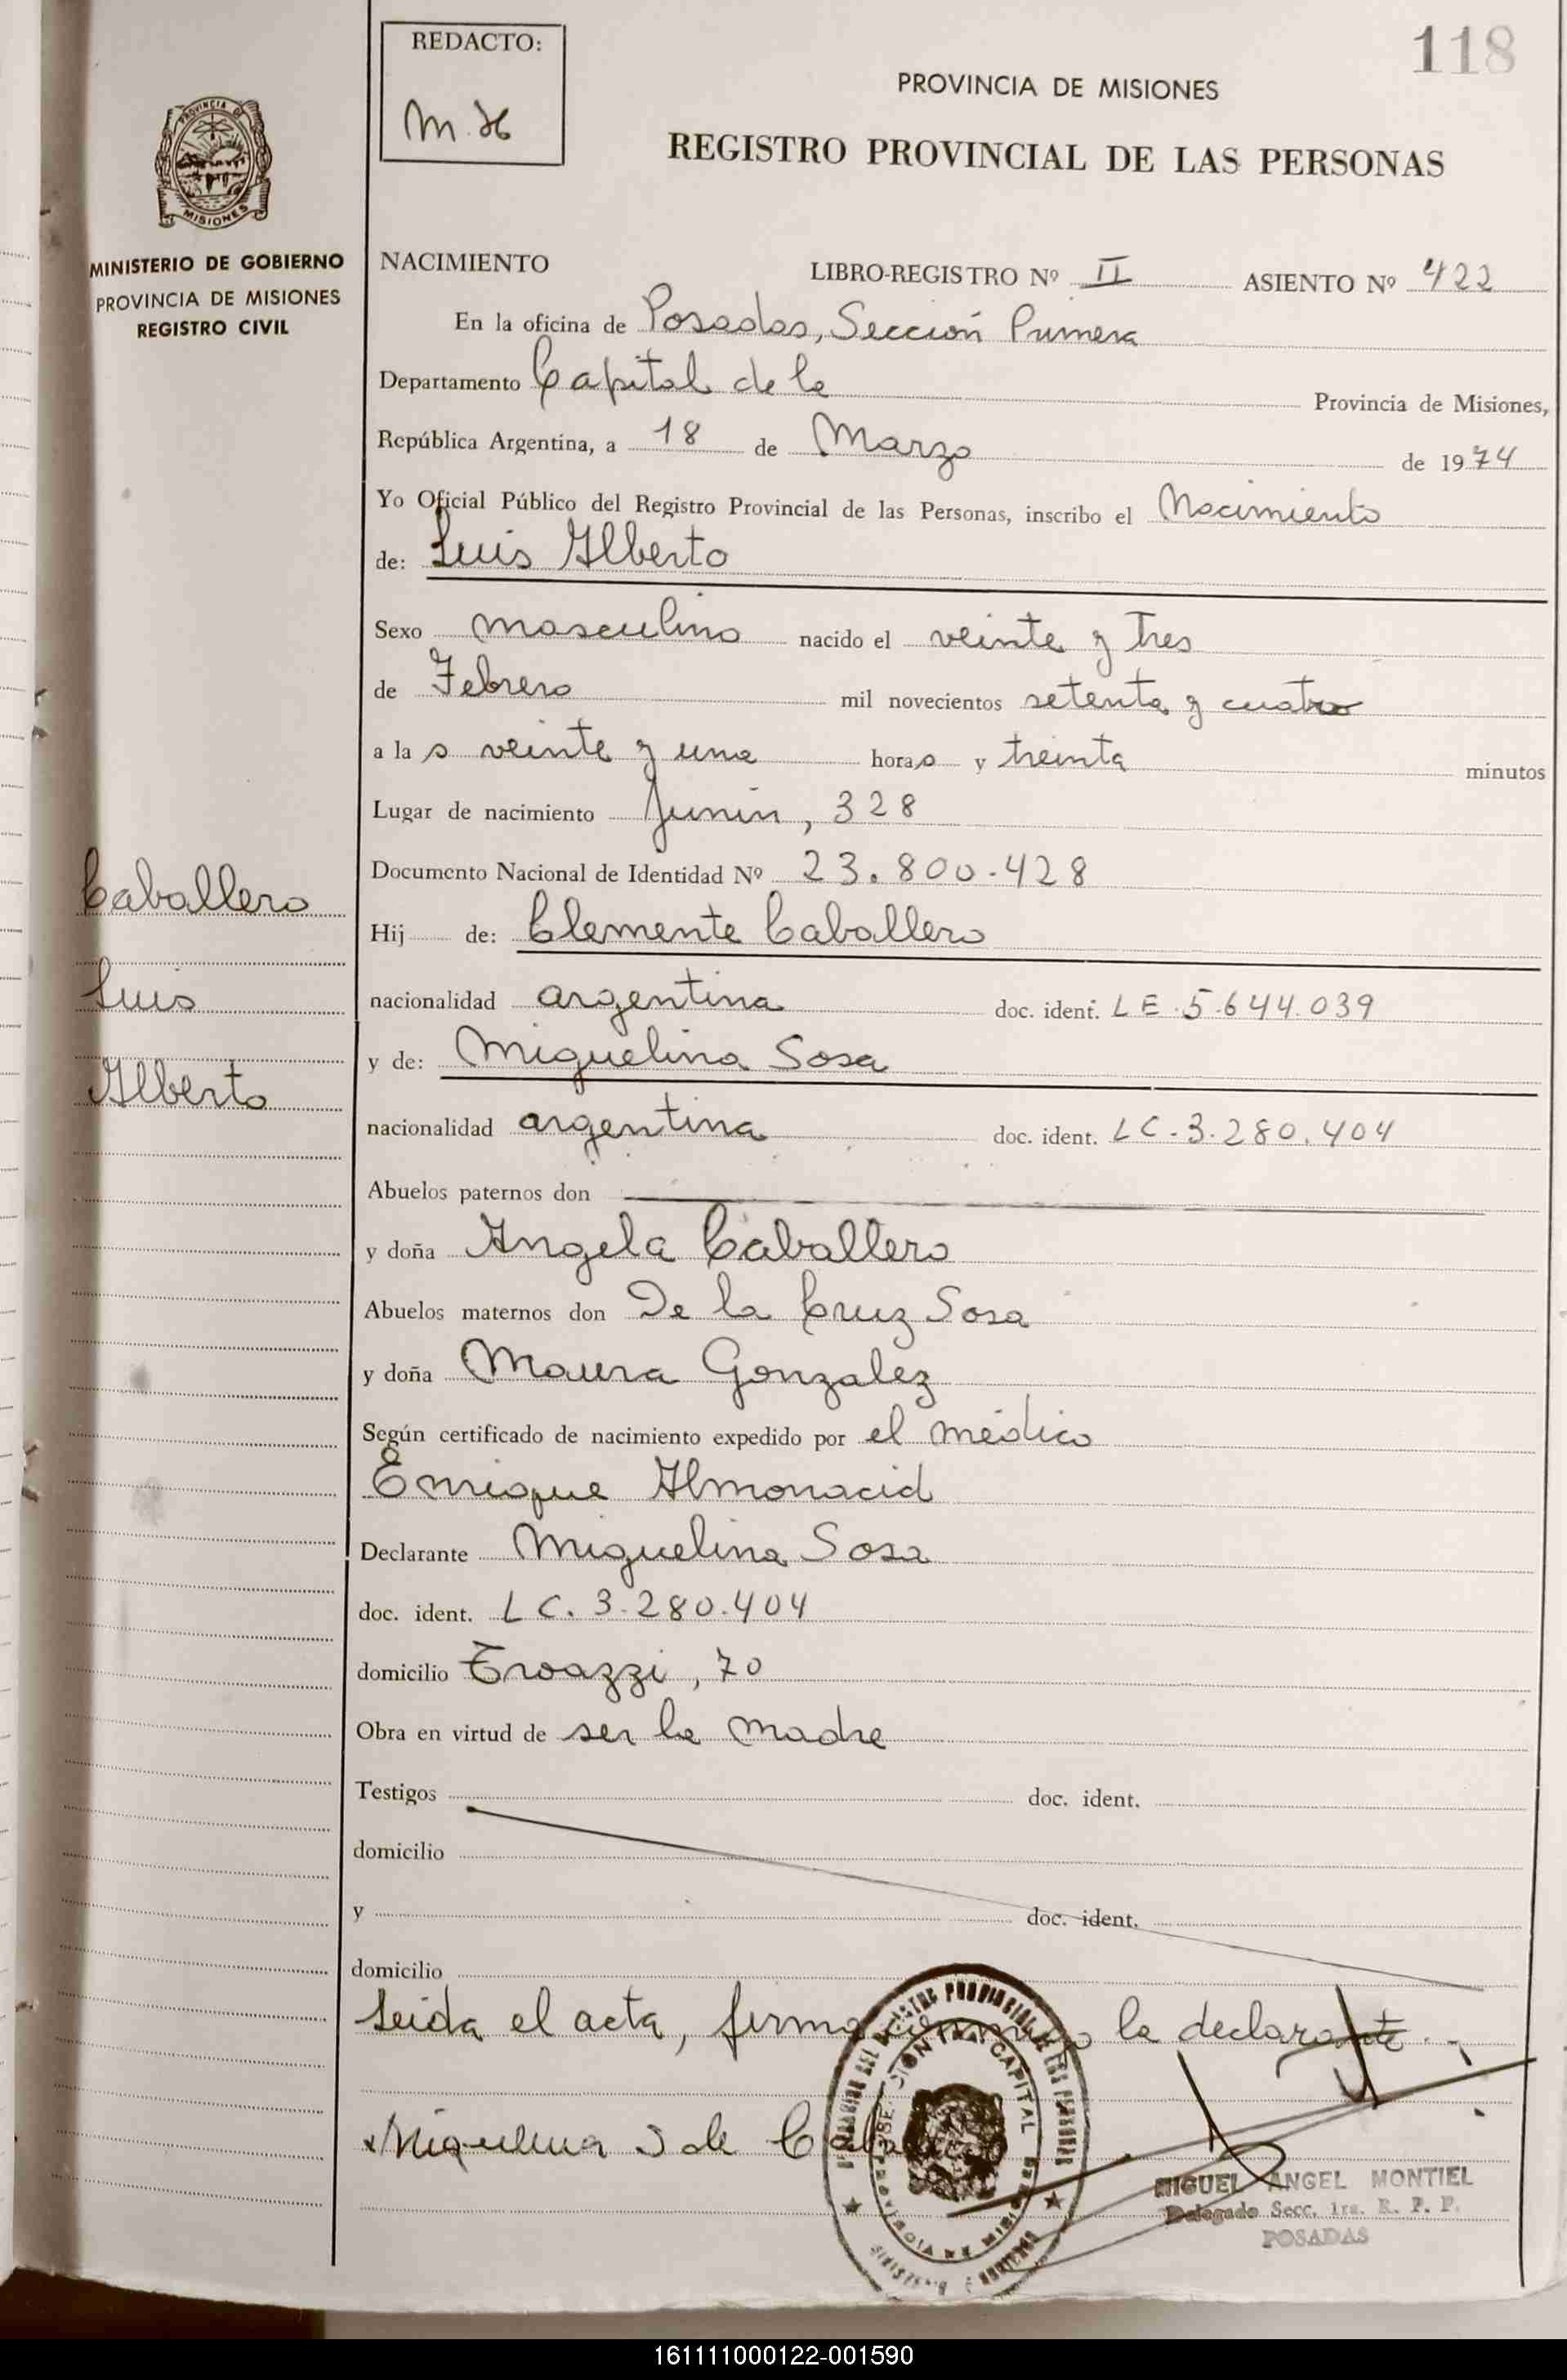 118
REDACTO:
PROVINCIA DE MISIONES
REGISTRO PROVINCIAL DE LAS PERSONAS
PROVINCIA DE
MISIONES
MINISTERIO DE GOBIERNO
PROVINCIA DE MISIONES
REGISTRO CIVIL
NACIMIENTO LIBRO-REGISTRO Nº II ASIENTO Nº 422
En la oficina de Posadas, Sección Primera
Departamento Capital de la Provincia de Misiones,
República Argentina, a 18 de Marzo de 1974
Yo Oficial Público del Registro Provincial de las Personas, inscribo el Nacimiento
de: Luis Alberto
Sexo masculino nacido el veinte y tres
de Febrero mil novecientos setenta y cuatro
a las veinte y una horas y treinta minutos
Lugar de nacimiento Junín, 328
Documento Nacional de Identidad Nº 23.800.428
Caballero
Hij de: Clemente Caballero
Luis
nacionalidad argentina doc. ident. LE.5.644.039
y de: Miguelina Sosa
Alberto
nacionalidad argentina doc. ident. LC.3.280.404
Abuelos paternos don
y doña Angela Caballero
Abuelos maternos don De la Cruz Sosa
y doña Maura Gonzalez
Según certificado de nacimiento expedido por el médico
Enrique Almonacid
Declarante Miguelina Sosa
doc. ident. LC. 3.280.404
domicilio Troazzi, 70
Obra en virtud de ser la madre
Testigos doc. ident.
domicilio
y doc. ident.
domicilio
Leida el acta, firma conmigo la declarante.
Miguelina S de
MIGUEL ANGEL MONTIEL
Delegado Secc. 1ra. R. P. P.
POSADAS
161111000122-001590